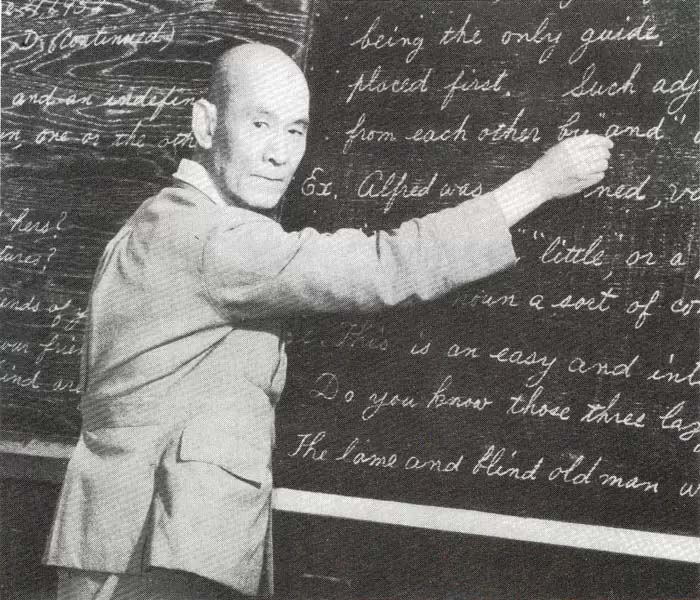 D. (Continued)
and an indefin
n, one or the oth
hers?
tures?
inds of
our frie
ind are
being the only guide.
placed first. Such adj
from each other by "and"
Ex. Alfred was ned, v
"little", or a
noun a sort of co
This is an easy and int
Do you know those three laz
The lame and blind old man w